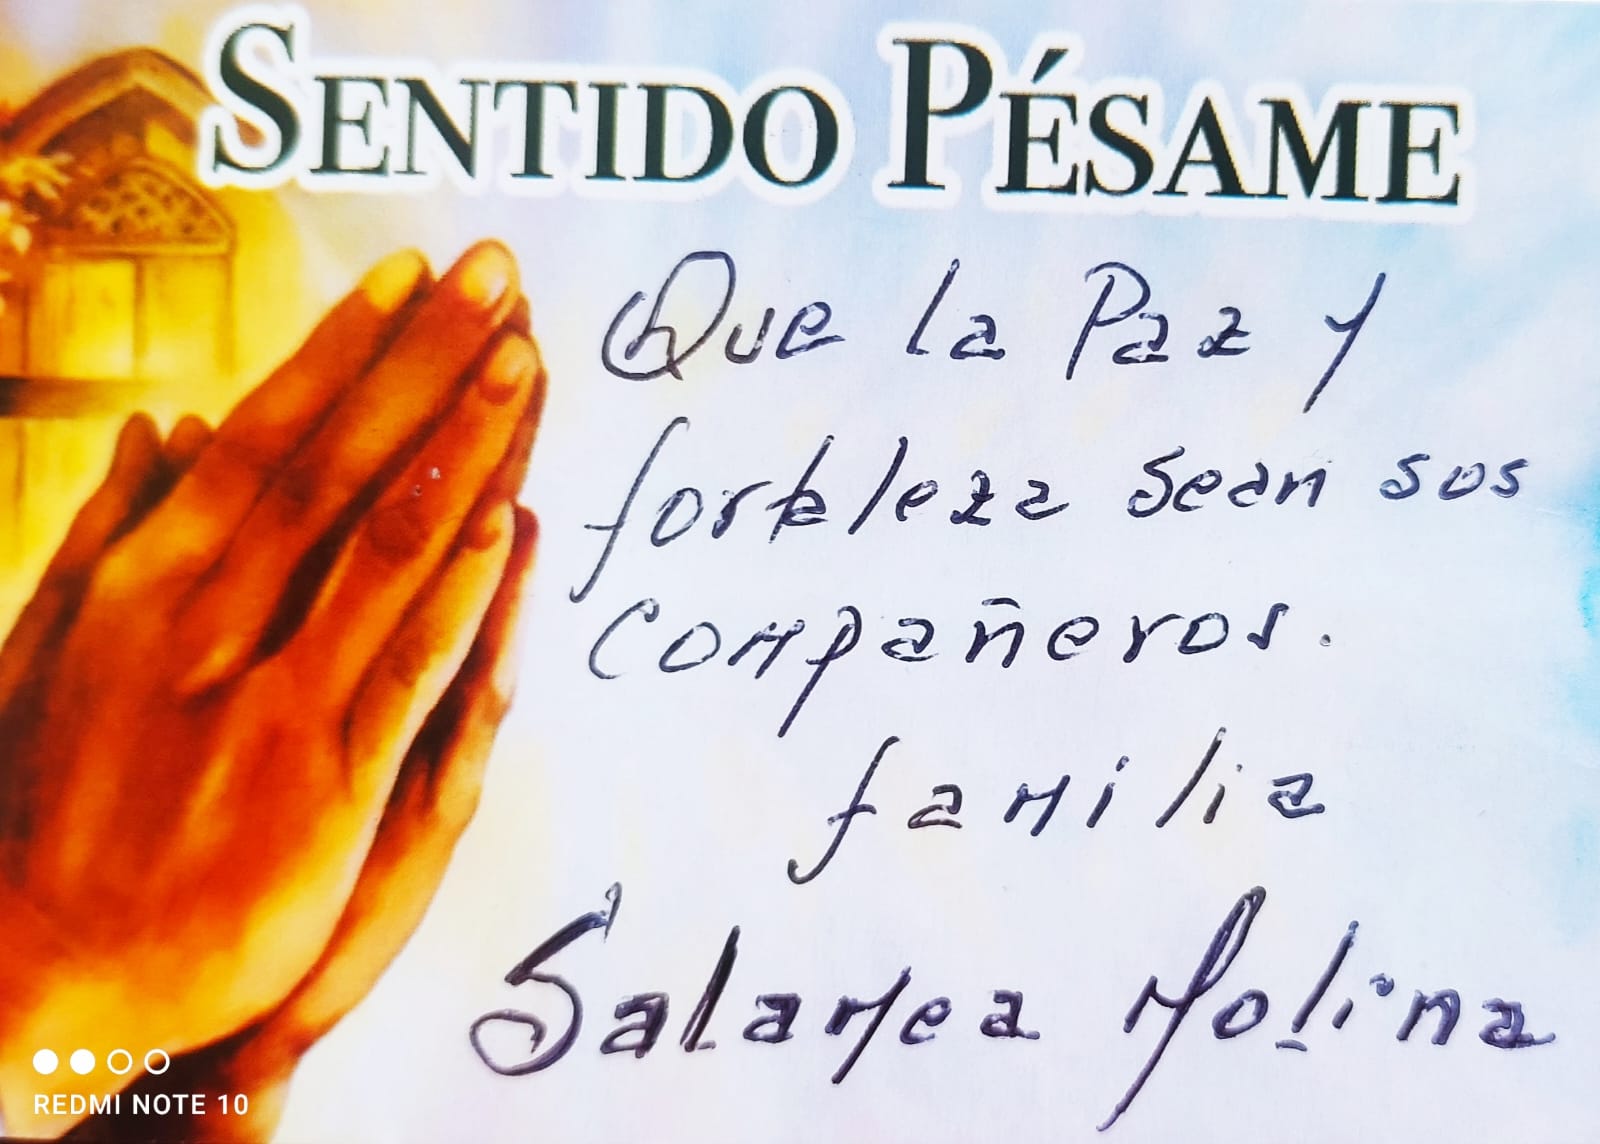 SENTIDO PÉSAME
Que la Paz y
fortaleza sean sos
compañeros.
familia
Salamea Molina
REDMI NOTE 10